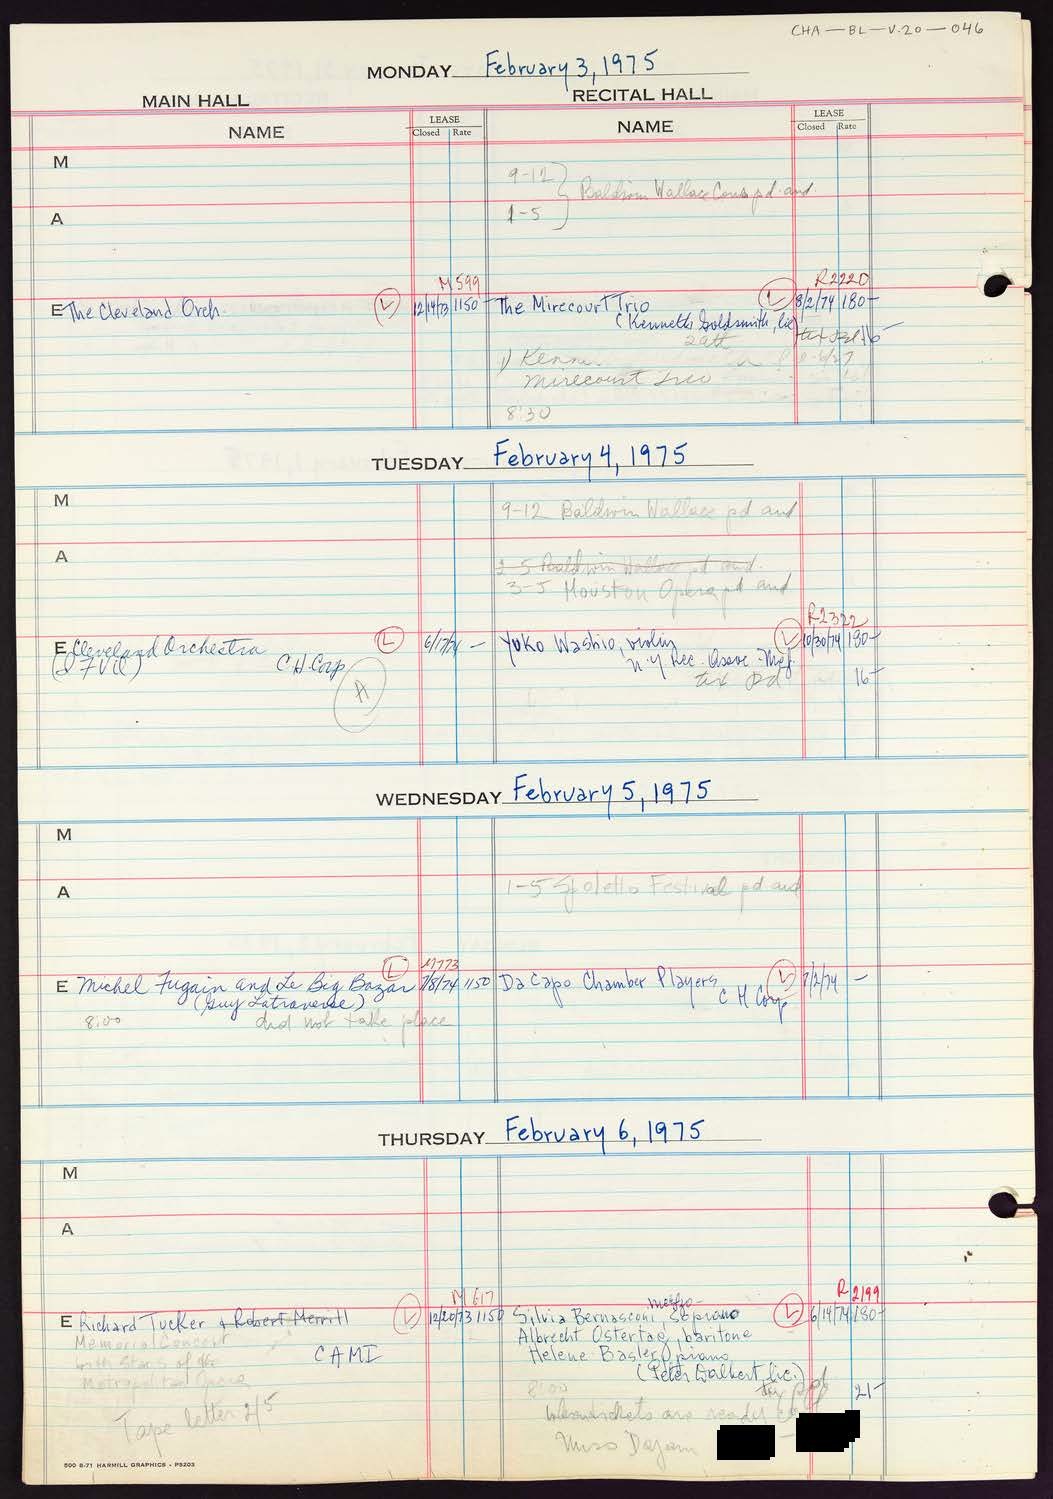 CHA-BL-V.20-046
MONDAY February 3, 1975
MAIN HALL RECITAL HALL
NAME LEASE NAME LEASE
Closed Rate Closed Rate
M
9-12 Baldwin Wallace Cons pd aud.
A
1-5
M 599 R2220
E The Cleveland Orch. L 12/14/73 1150 - The Mirecourt Trio L 8/2/74 180-
(Kenneth Goldsmith, lic)
1) Kenn
Mirecourt Trio
8:30
TUESDAY February 4, 1975
M 9-12 Baldwin Wallace pd aud
A
2-5 Baldwin Wallace pd aud.
3-5 Houston Opera pd aud
R2322
E Cleveland Orchestra L 6/17/74 - Yoko Washio, violin L 10/30/74 180-
C.H. Corp N.Y. Rec. Assoc. Mgt.
A tix pd 16-
WEDNESDAY February 5, 1975
M
A 1-5 Spoletto Festival pd aud
M773
E Michel Fugain and Le Big Bazar L 7/8/74 1150 Da Capo Chamber Players L 7/2/74 -
(Guy Latraverse) C H Corp
8:00 did not take place
THURSDAY February 6, 1975
M
A
M 617 R 2199
E Richard Tucker & Robert Merrill L 12/20/73 1150 Silvia Bernasconi, mezzo-soprano L 6/14/74 180-
Memorial Concert Albrecht Ostertag, baritone
with Stars of the CAMI Helene Basler, piano
Metropolitan Opera (Peter Walbert, lic.)
8:00 tix pd 21-
Tape letter 2/5 are ready
Miss
500 8-71 HARMILL GRAPHICS - P5203